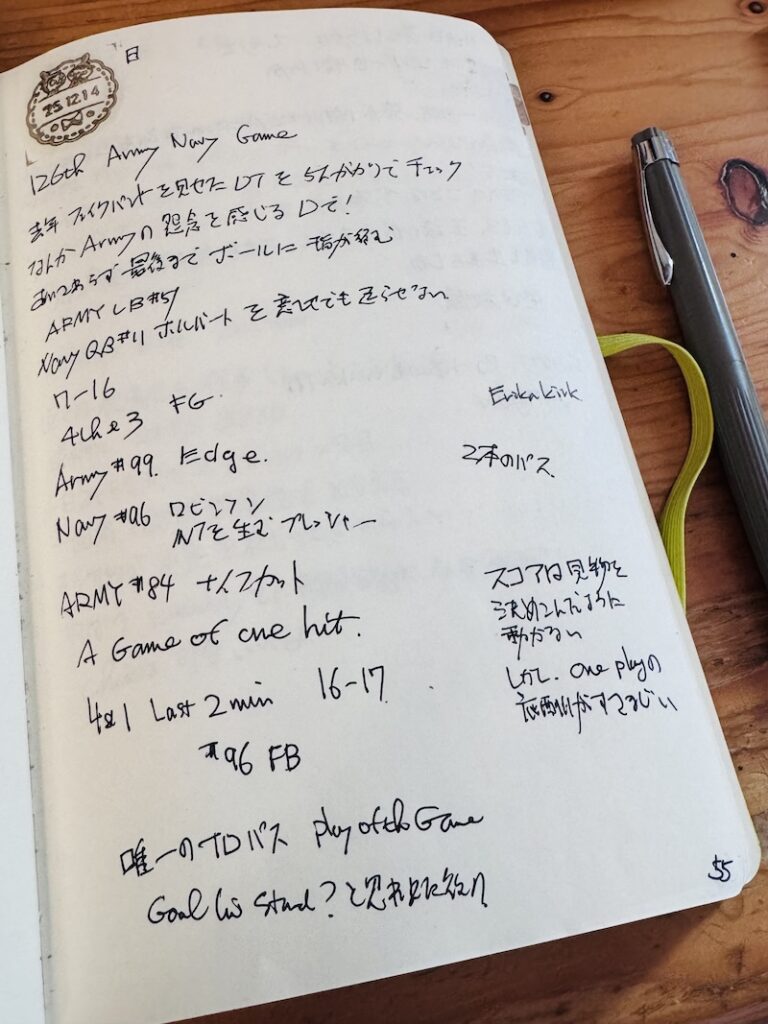 日
25.12.14
126th Army Navy Game
去年 フェイクパントを見せた DT を 5人がかりで チェック
なんか Armyの 怨念を感じる Dで!
最後まで ボールに 指が絡む
ARMY LB #57
Navy QB #11 ホルバート を 走らせない
7-16
4th & 3 FG
Erika kirk
Army #99. Edge.
2本のパス
Navy #96 ロビンソン
INTを生む プレッシャー
ARMY #84 ナイフカット
スコアは
ように
動かない
A Game of one hit.
4&1 Last 2 min 16-17
しかし、One playの
がすさまじい
#96 FB
唯一のTDパス Play of th Game
Goal line Stand? と思われた
55